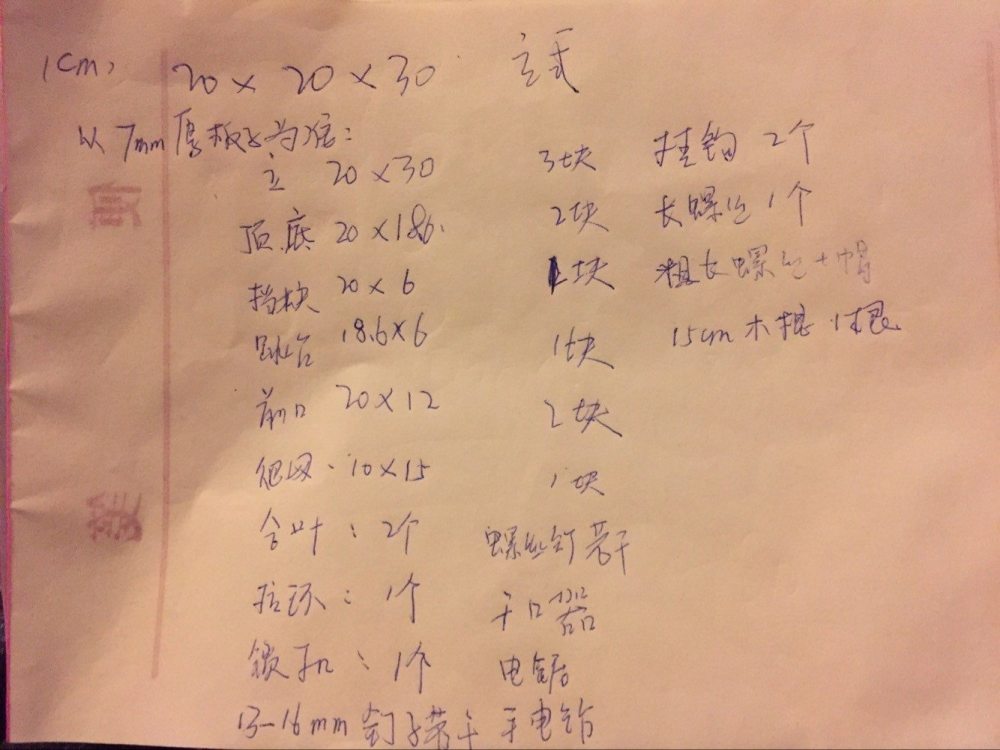 1cm, 20×20×30 立式
以7mm厚板子为准:
立 20×30 3块 挂钩 2个
顶.底 20×18.6. 2块 长螺丝 1个
挡块 20×6 1块 粗长螺丝+帽
跳台 18.6×6 1块 15cm木棍 1根
前口 20×12 2块
爬网. 10×15 1块
合叶: 2个 螺丝钉若干
拉环: 1个 开口器
锁扣: 1个 电锯
13-16mm 钉子若干 手电钻